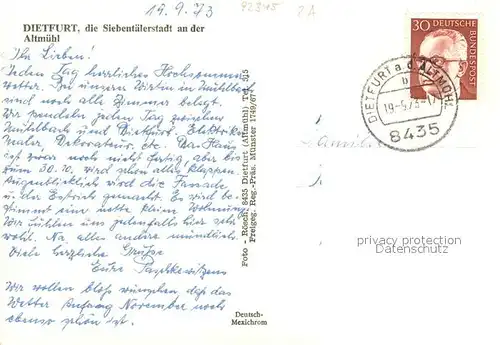 19.9.73
92345
2A
DIETFURT, die Siebentälerstadt an der
Altmühl
Ihr Lieben!
Jeden Tag herrliches Hochsommer
wetter. Bei unseren Wirten in
alle Zimmer belegt.
Wir pendeln jeden Tag zwischen
und Dietfurt. Elektriker
Maler, Dekorateur, etc. Das Haus
ist zwar noch nicht fertig, aber bis
zum 30.10. wird schon alles klappen.
Augenblicklich wird die Fassade
und der Estrich gemacht. Es wird be-
stimmt eine nette kleine Wohnung.
Wir fühlen uns jedenfalls hier sehr
wohl. Na, alles andere mündlich.
Viele herzliche Grüße
Eure
Wir wollen bloß wünschen daß das
Wetter Anfang November noch
ebenso schön ist.
Foto - Rösch, 8435 Dietfurt (Altmühl) Tel. 515
Freigeg. Reg.-Präs. Münster 1749/67
Deutsch-
Mexichrom
30 DEUTSCHE
BUNDESPOST
DIETFURT a. d. ALTMÜHL
b
8435
Familie
privacy protection
Datenschutz